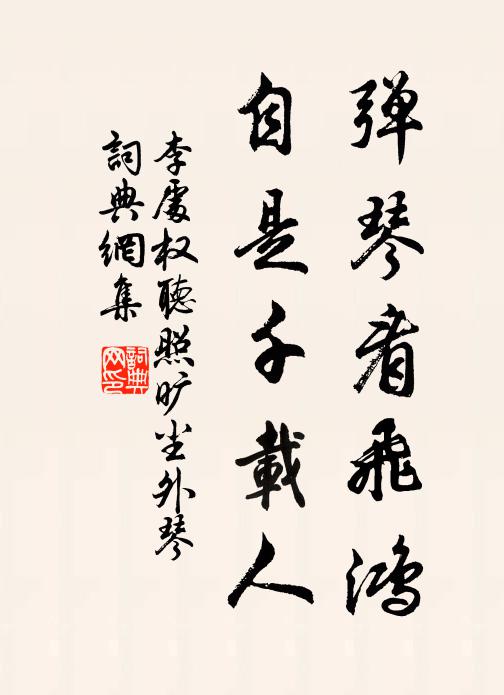 弹琴看飞鸿
自是千载人
李处权聽照旷坐外琴
詞典網集
詞典
网印